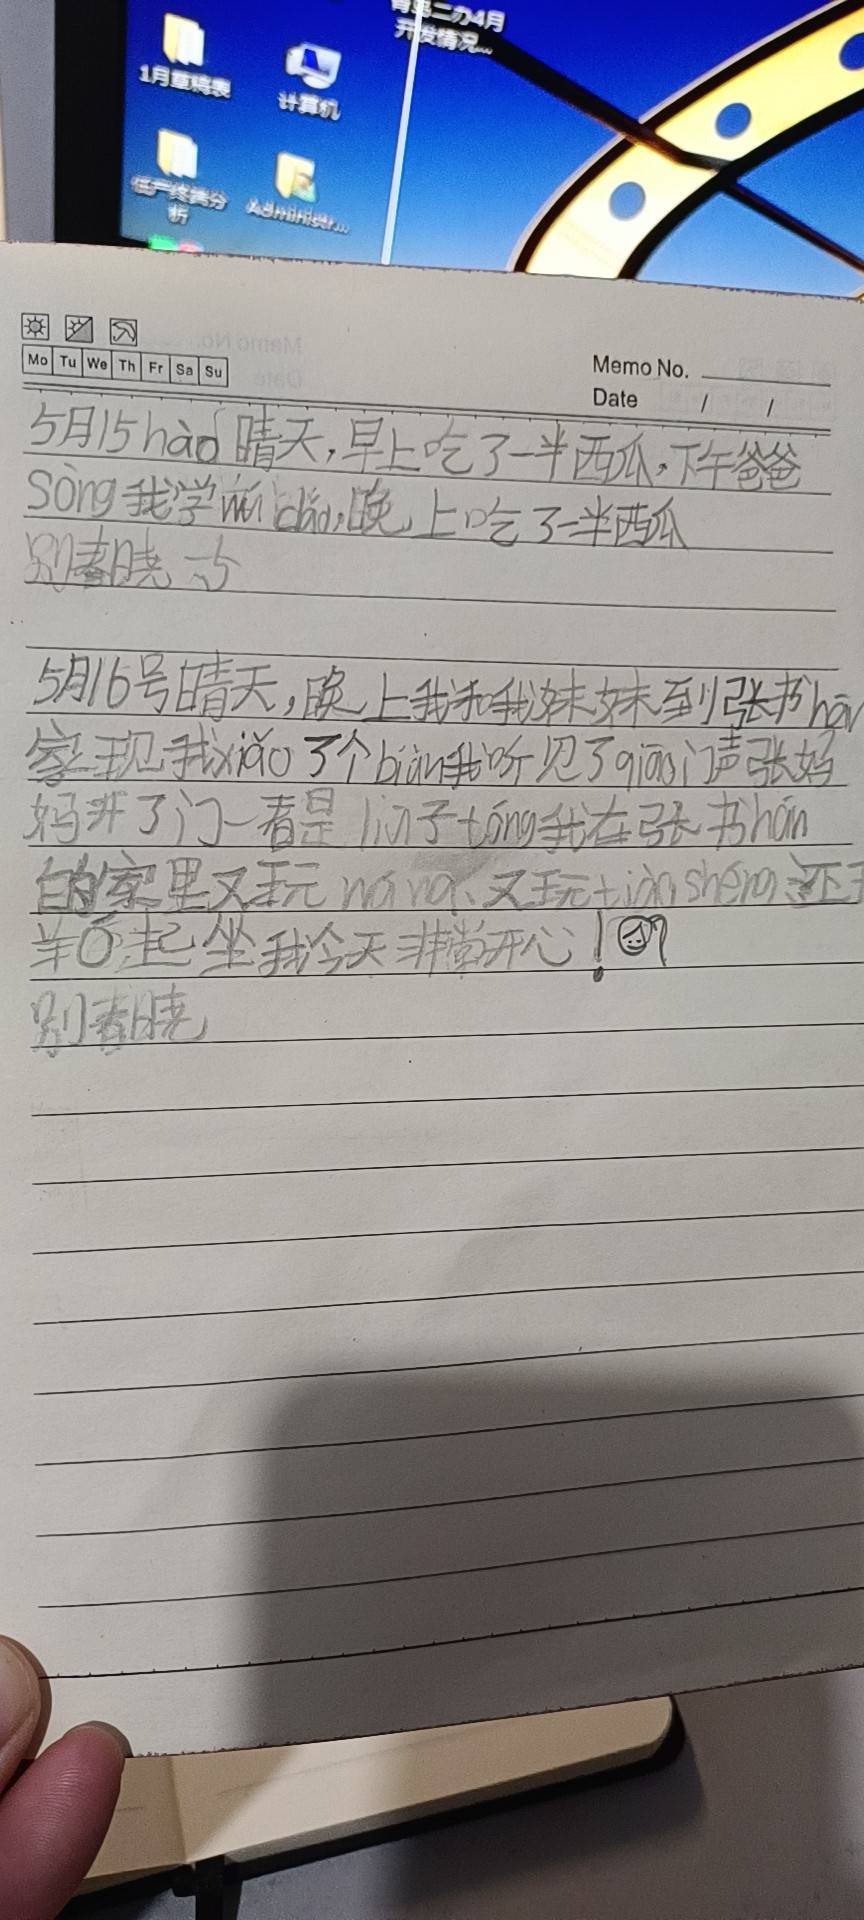 1月重稿表
计算机
青岛二办4月
开发情况...
析
Administr...
Mo Tu We Th Fr Sa Su
Memo No.
Date / /
5月15hào晴天,早上吃了一半西瓜,下午爸爸
sòng我学 晚上吃了一半西瓜
别春晓
5月16号晴天,晚上我和我妹妹到张书hán
家玩我xiǎo了个biàn我听见了qiāo门声张妈
妈开了门一看是lín子tóng我在张书hán
的家里又玩 又玩 shéng还
起坐我今天非常开心!
别春晓